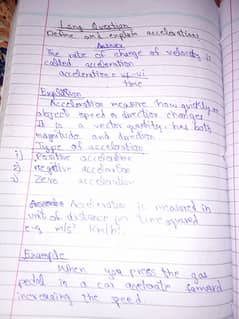 Long Question
Define and explain acceleration.
Answer
The rate of change of velocity is
called acceleration
acceleration = vf - vi
time
Explanation
Acceleration measure how quickly an
object speed or direction changes
It is a vector quantity has both
magnitude and direction.
Type of acceleration
1) Positive acceleration
2) Negative acceleration
3) Zero acceleration
Acceleration is measured in
unit of distance per time squared
e.g m/s² km/h²
Example
When you press the gas
pedal in a car acelerate forward
increasing the speed.